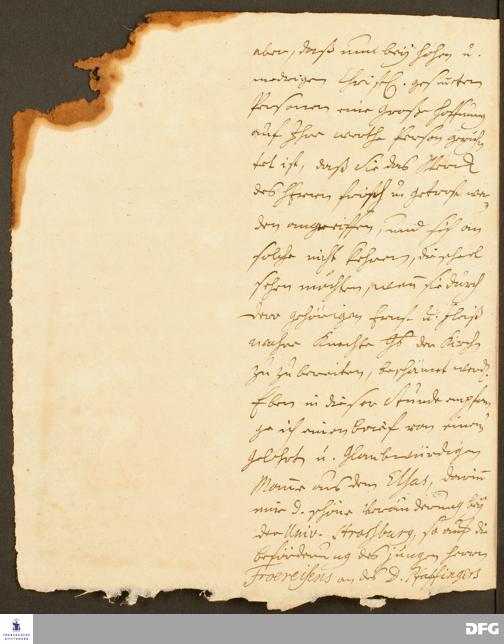 aber, daß nun bey hohen u.
niedrigen Christl. gesinten
Personen eine große Hoffnung
auf Ihre werthe Person gerich-
tet ist, daß Sie das Werck
des Herren frisch u. getrost wer-
den angreiffen, und sich an
solche nicht kehren, die scheel
sehen möchten, wenn sie durch
dero gehörigen Ernst u. Fleiß
wahre Knechte der Kirch
zu zu bereiten, beschämet werd.
Eben in dieser Stunde empfan-
ge ich einen brief von einem
gelehrt u. Glaubwürdigen
Manne aus dem Elsas, darinn
mir d. schöne Veränderung bey
der Univ. Strasburg, so auf die
beförderung des jungen Herrn
Froereisens an des D. Pfaffingers
FRANCKESCHE STIFTUNGEN
DFG